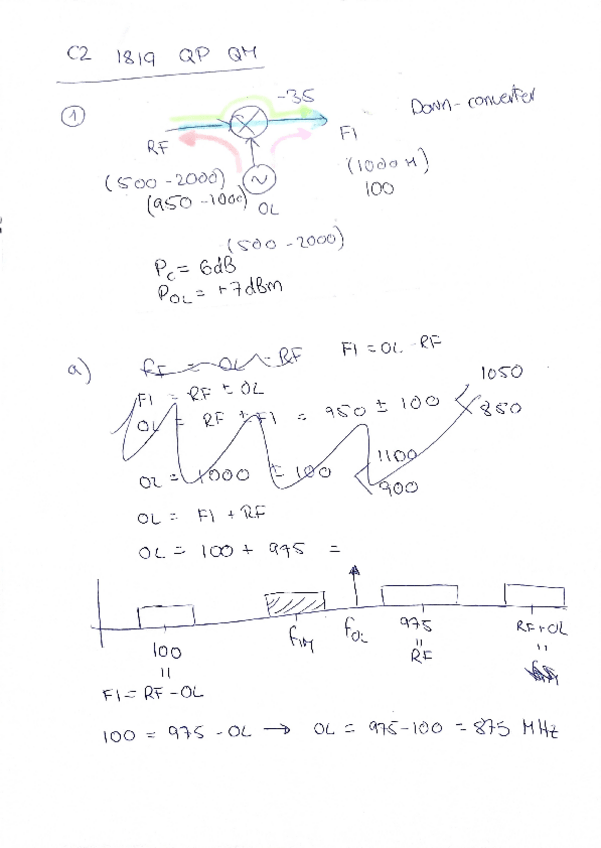 C2 1819 QP QM
① -35 Down-converter
RF FI
(500-2000) (1000 M)
(950-1000) OL 100
(500-2000)
Pc = 6dB
POL = +7dBm
a) FI = OL - RF
FI = RF ± OL 1050
OL = RF ± FI = 950 ± 100 850
OL = 1000 ± 100 1100
900
OL = FI + RF
OL = 100 + 975 =
100 fIM fOL 975 RF+OL
= = =
FI = RF-OL RF
100 = 975 - OL → OL = 975-100 = 875 MHz